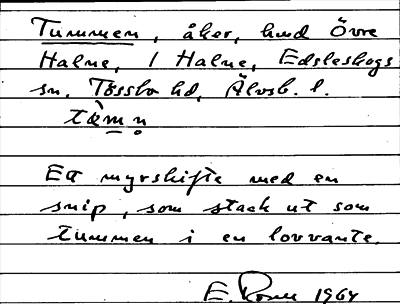 Tummen, åker, hmd Övre
Halne, 1 Halne, Edsleskogs
sn, Tössbo hd, Älvsb. l.
tàm̲n̥
Ett myrskifte med en
snip, som stack ut som
tummen i en lovvante.
E. 1964